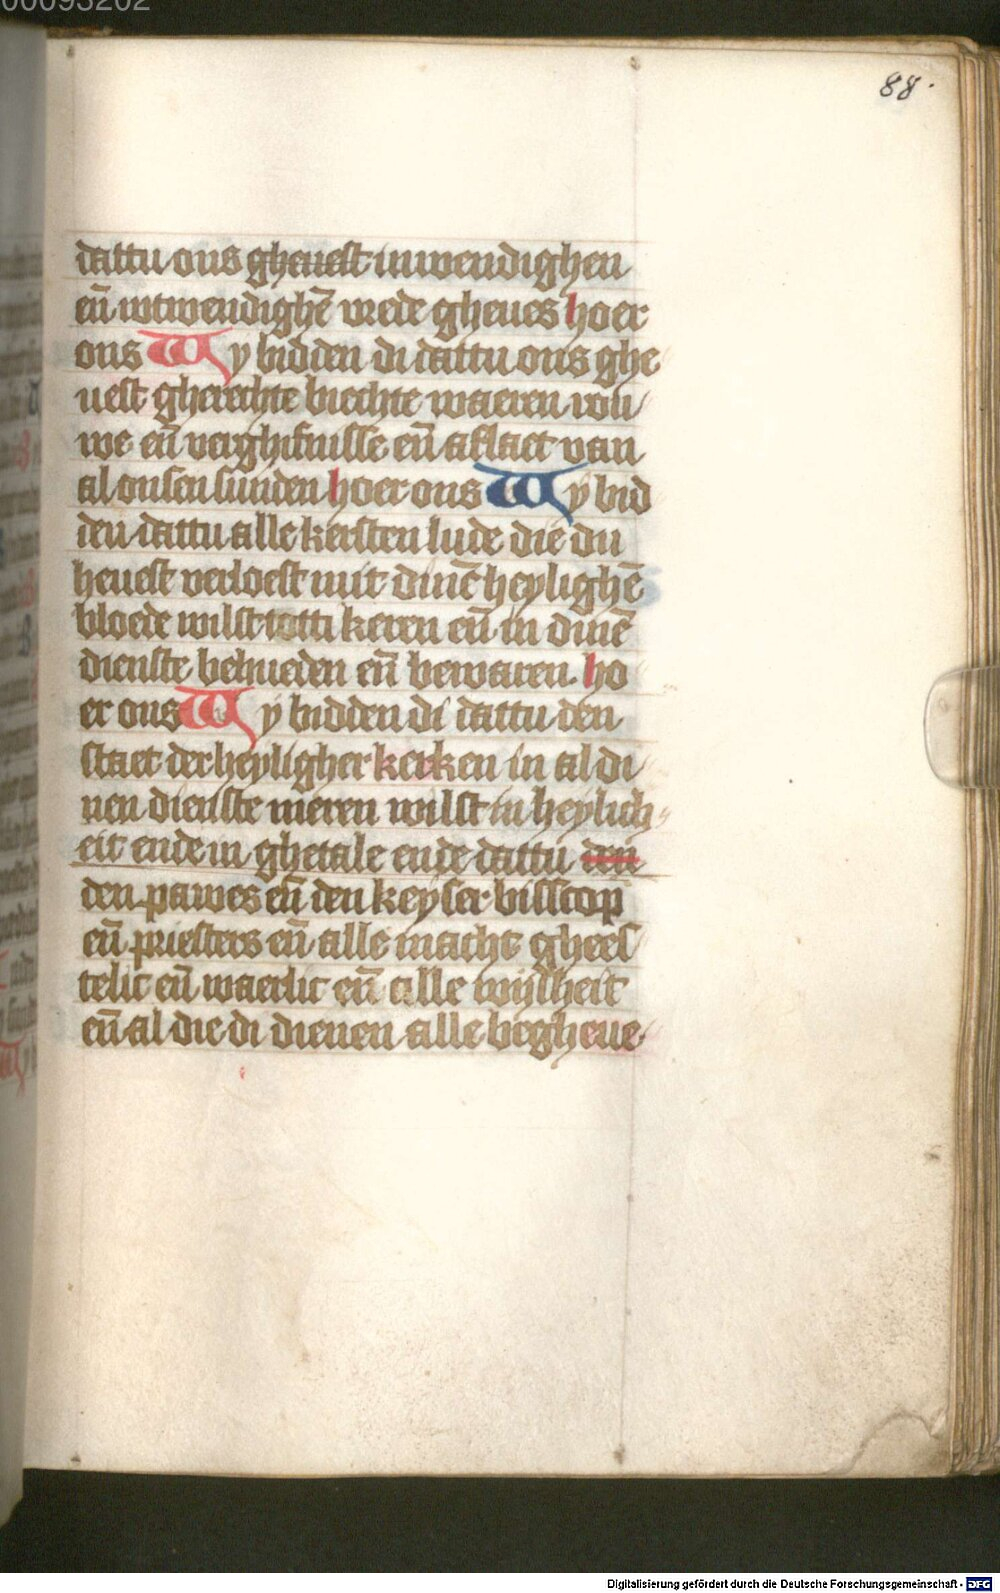 00093202
88.
dattu ons gheuest inwendighen
eñ wtwendighē vrede gheues hoer
ons Wy bidden di dattu ons ghe
uest gherechte biechte waeren rou
we eñ verghifnisse eñ aflaet van
al onsen sunden hoer ons Wy bid
den dattu alle kersten lude die du
heuest verloest mit dinē heylighē
bloede wilst totti keren eñ in dinē
dienste behueden eñ bewaren. ho
er ons Wy bidden di dattu den
staet der heyligher kerken in al di
nen dienste meren wilst in heylich
eit ende in ghetale ende dattu den
den pawes eñ den keyser bisscop
eñ priesters eñ alle macht ghees
telic eñ waerlic eñ alle wijsheit
eñ al die di dienen alle begheue
Digitalisierung gefördert durch die Deutsche Forschungsgemeinschaft - DFG